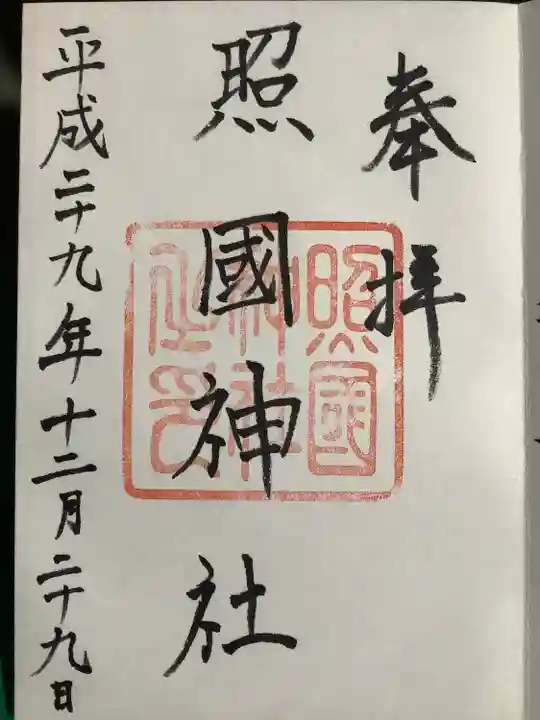 奉拝
照國神社
照國神社之印
平成二十九年十二月二十九日